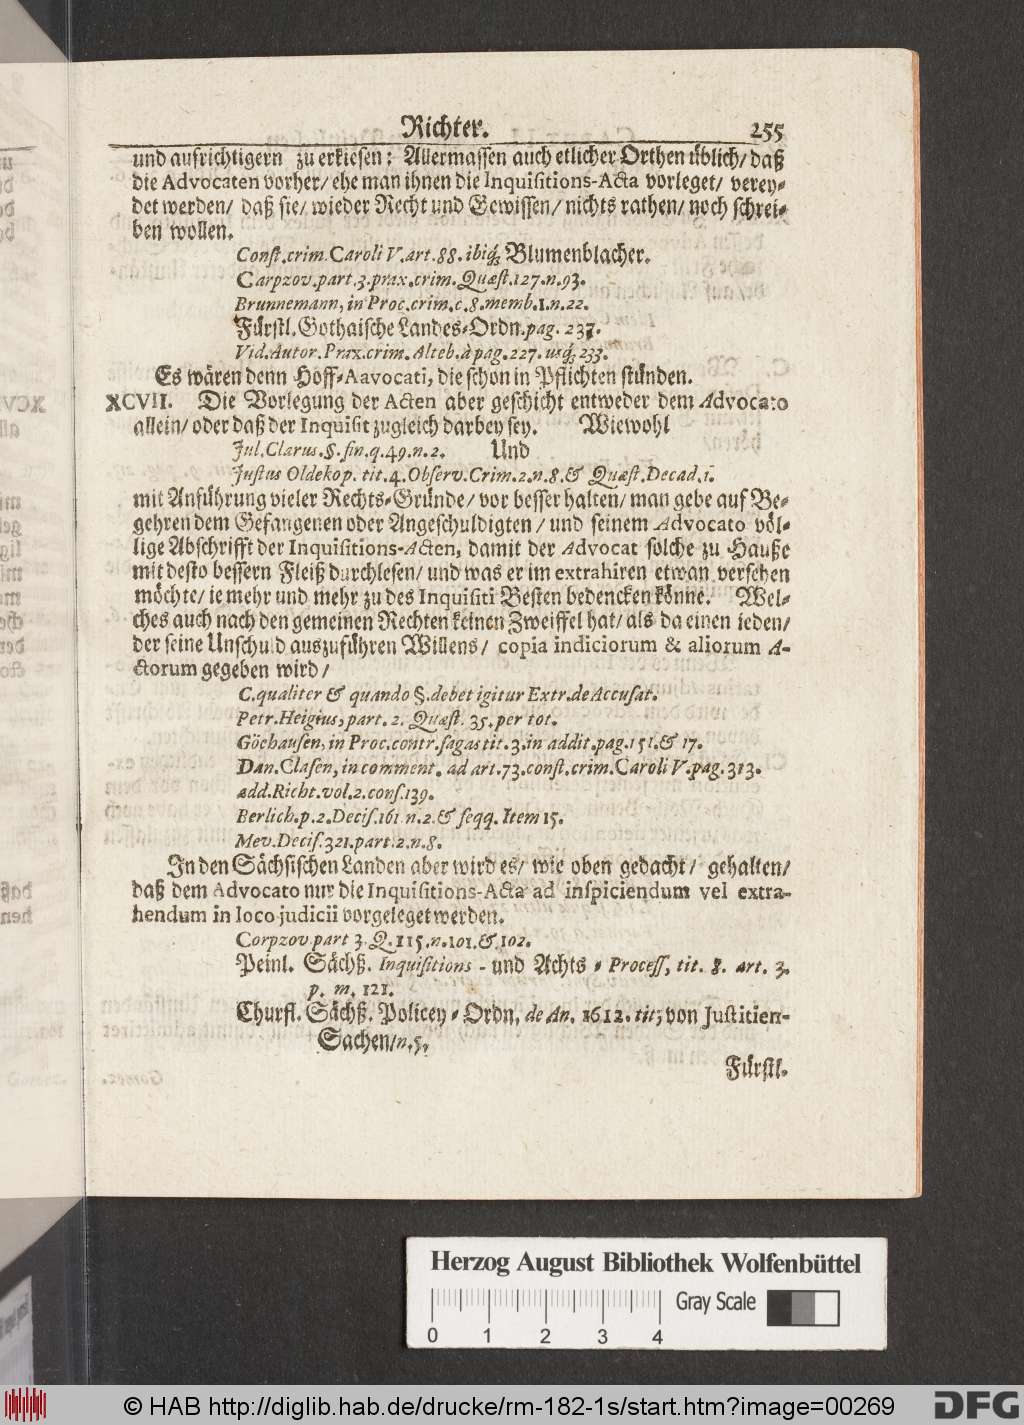 Richter. 255
und aufrichtigern zu erkiesen: Allermassen auch etlicher Orthen üblich/ daß
die Advocaten vorher/ ehe man ihnen die Inquisitions-Acta vorleget/ verey-
det werden/ daß sie/ wieder Recht und Gewissen/ nichts rathen/ noch schrei-
ben wollen.
Const.crim.Caroli V.art.88.ibiq; Blumenblacher.
Carpzov.part.3.prax.crim.Quæst.127.n.93.
Brunnemann, in Proc.crim.c.8.memb.1.n.22.
Fürstl.Gothaische Landes-Ordn.pag. 237.
Vid.Autor.Prax.crim. Alteb.à pag.227. usq; 233.
Es wären denn Hoff-Aavocati, die schon in Pflichten stünden.
XCVII. Die Vorlegung der Acten aber geschicht entweder dem Advocato
allein/ oder daß der Inquisit zugleich darbey sey. Wiewohl
Jul.Clarus.§.fin.q.49.n.2. Und
Justus Oldekop. tit.4.Observ.Crim.2.n.8.& Quæst.Decad.1.
mit Anführung vieler Rechts-Gründe/ vor besser halten/ man gebe auf Be-
gehren dem Gefangenen oder Angeschuldigten/ und seinem Advocato völ-
lige Abschrifft der Inquisitions-Acten, damit der Advocat solche zu Hauße
mit desto bessern Fleiß durchlesen/ und was er im extrahiren etwan versehen
möchte/ ie mehr und mehr zu des Inquisiti Besten bedencken könne. Wel-
ches auch nach den gemeinen Rechten keinen Zweiffel hat/ als da einen ieden/
der seine Unschuld auszuführen Willens/ copia indiciorum & aliorum A-
ctorum gegeben wird/
C.qualiter & quando §.debet igitur Extr.de Accusat.
Petr.Heigius, part. 2. Quæst. 35.per tot.
Göehausen, in Proc.contr.sagas tit.3.in addit.pag.151.& 17.
Dan.Clasen, in comment. ad art.73.const.crim.Caroli V.pag.313.
add.Richt.vol.2.cons.139.
Berlich.p.2.Decis.161.n.2.& seqq. Item 15.
Mev.Decis.321.part.2.n.8.
In den Sächsischen Landen aber wird es/ wie oben gedacht/ gehalten/
daß dem Advocato nur die Inquisitions-Acta ad inspiciendum vel extra-
hendum in loco judicii vorgeleget werden.
Corpzov.part 3.Q.115.n.101.&102.
Peinl. Sächß. Inquisitions - und Achts - Process, tit. 8. art. 3.
p. m. 121.
Churfl. Sächß. Policey - Ordn, de An. 1612. tit; von Justitien-
Sachen/n.5.
Fürstl.
Herzog August Bibliothek Wolfenbüttel
Gray Scale
0 1 2 3 4
© HAB http://diglib.hab.de/drucke/rm-182-1s/start.htm?image=00269
DFG